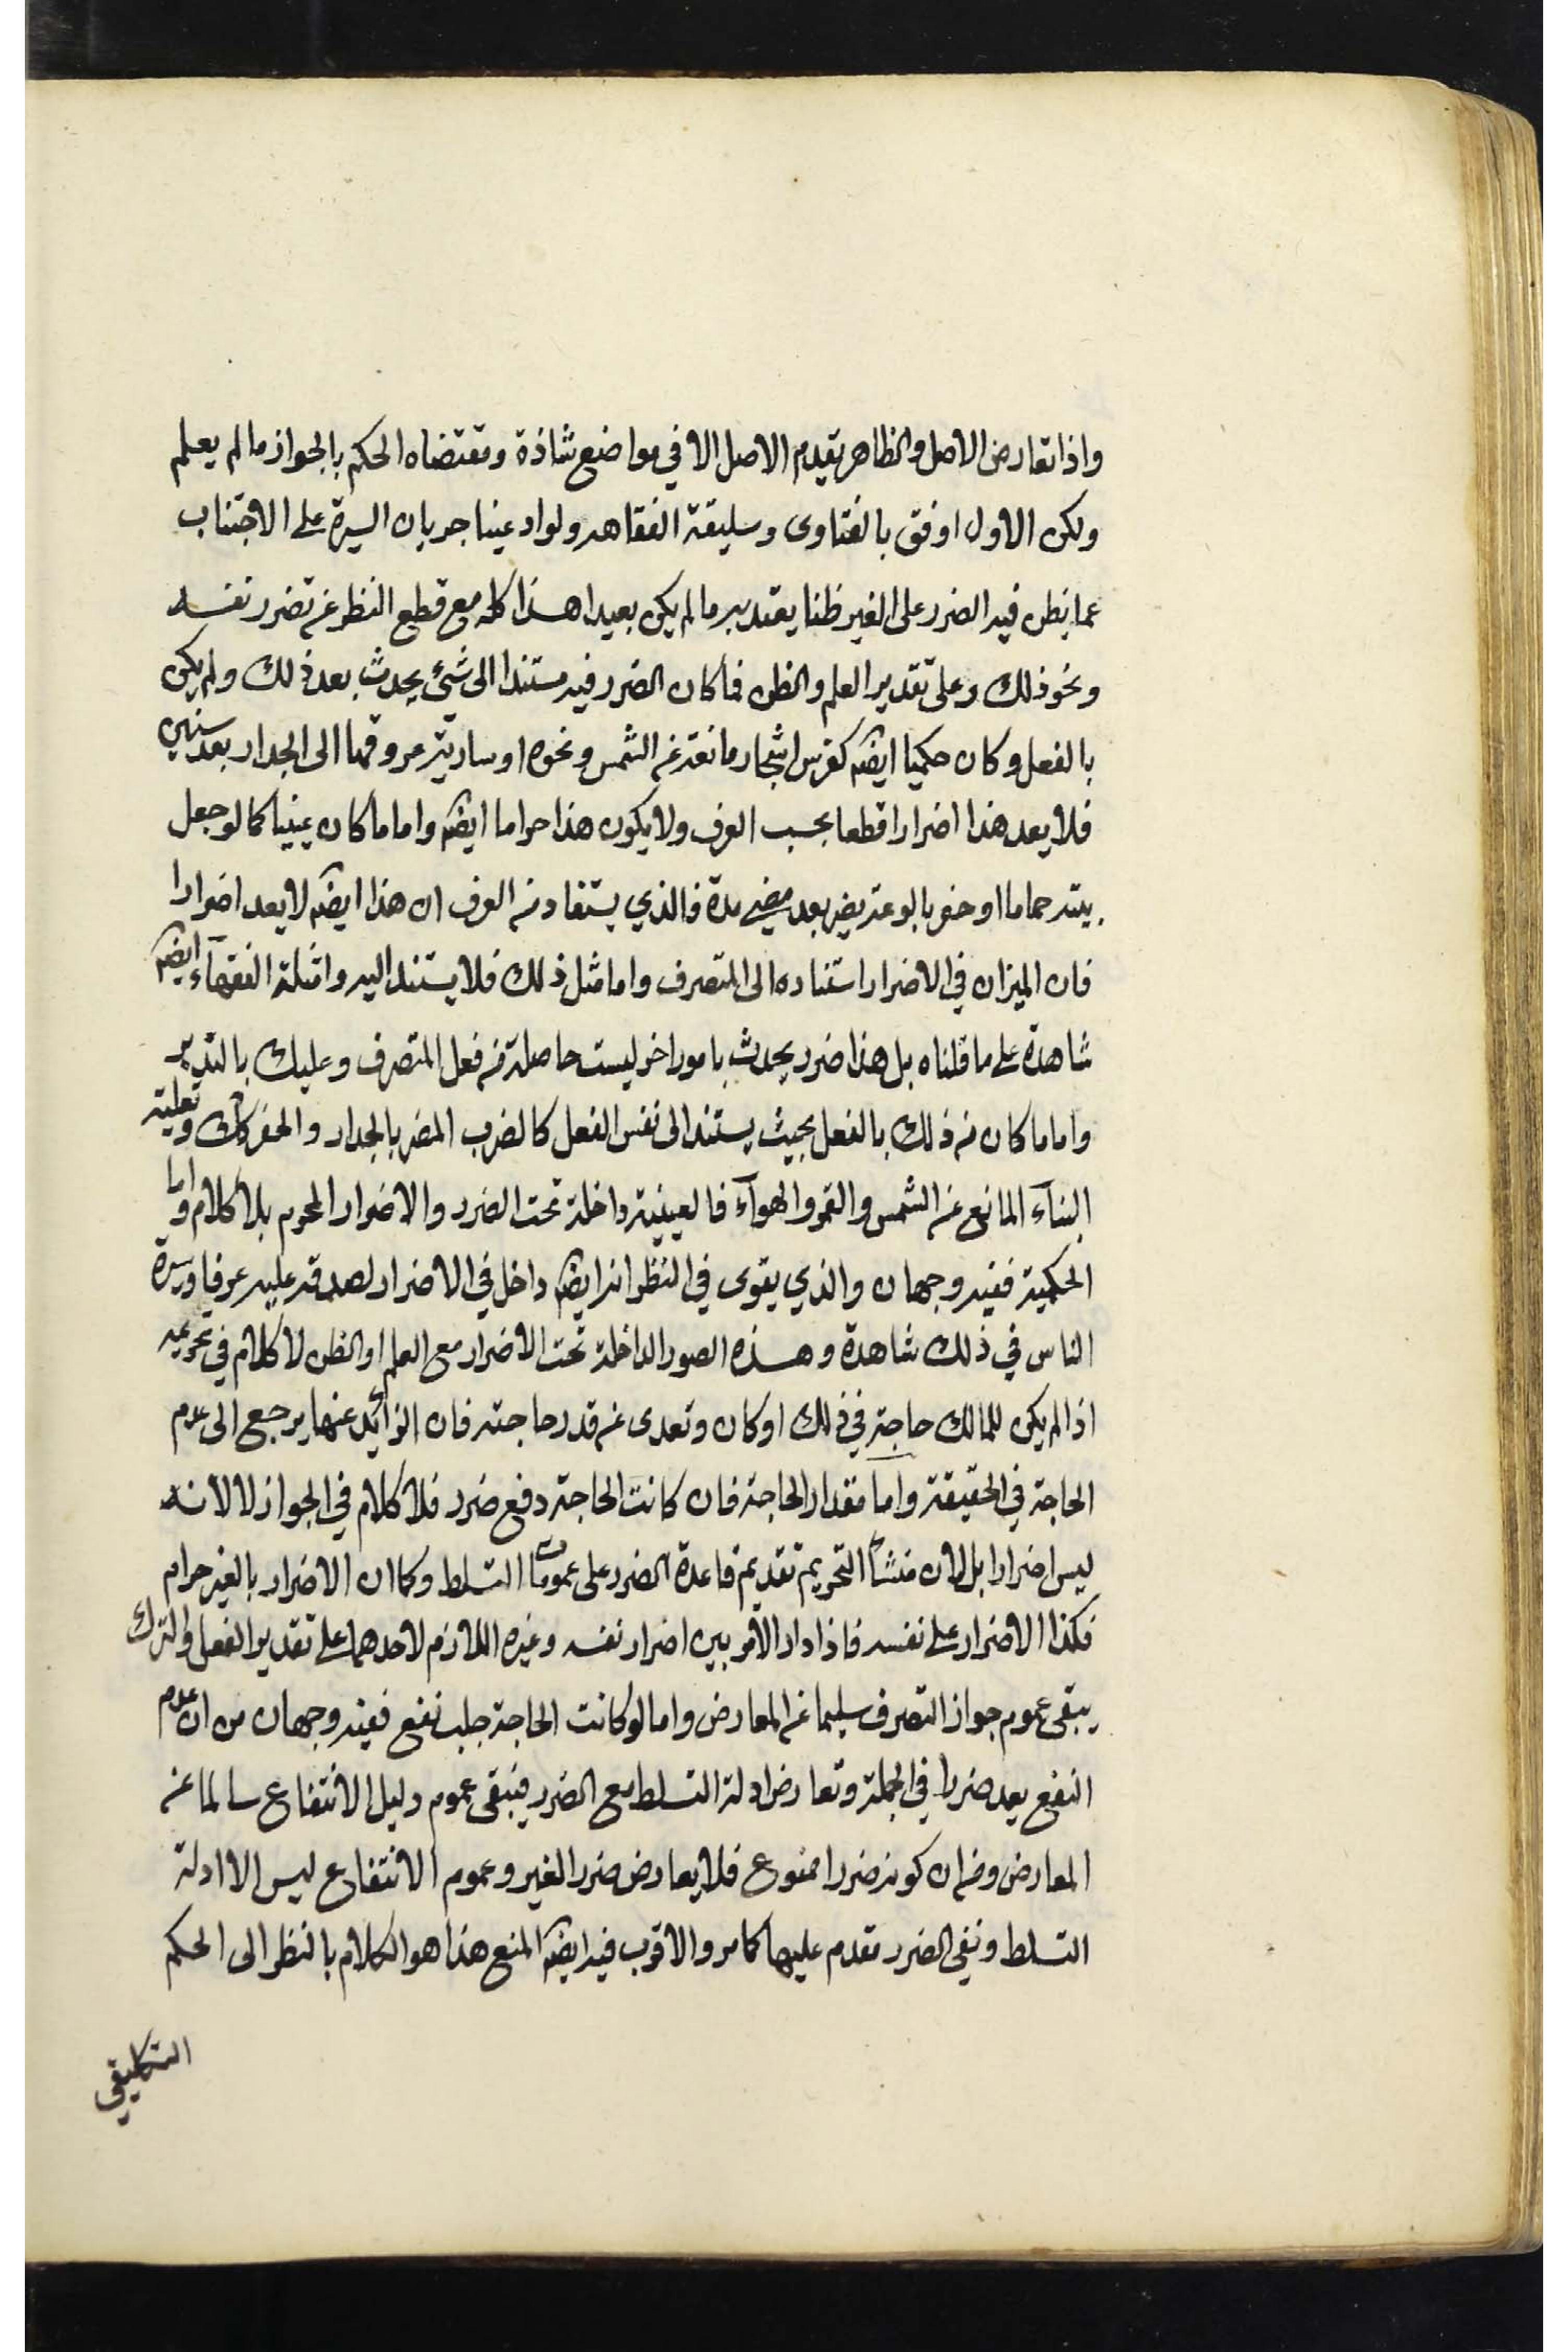 واذا تعارض الاصل والظاهر يقدم الاصل الا في مواضع شاذة ومقتضاه الحكم بالجواز ما لم يعلم
ولكن الاول اوفق بالفتاوى وسليقة الفقاهة ولو ادعينا جريان السيرة على الاجتناب
عما يظن فيه الضرر على الغير ظنا يعتد به ما لم يكن بعيدا هذا كله مع قطع النظر عن تضرر نفسه
ونحو ذلك وعلى تقدير العلم والظن فما كان الضرر فيه مستندا الى شيء يحدث بعد ذلك ولم يكن
بالفعل وكان حكميا ايضا كغرس اشجار مانعة عن الشمس ونحوه او سارية عروقها الى الجدار بعد سنين
فلا يعد هذا اضرارا قطعا بحسب العرف ولا يكون هذا حراما ايضا واما ما كان عينيا كما لو جعل
بيته حماما او حفر بالوعة يضر بعد مضي مدة فالذي يستفاد من العرف ان هذا ايضا لا يعد اضرارا
فان الميزان في الاضرار استناده الى المتصرف واما مثل ذلك فلا يستند اليه وامثلة الفقهاء ايضا
شاهدة على ما قلناه بل هذا ضرر يحدث بامور اخر ليست حاصلة من فعل المتصرف وعليك بالتدبر
واما ما كان من ذلك بالفعل بحيث يستند الى نفس الفعل كالضرب المضر بالجدار والحفر كك وتعلية
البناء المانع عن الشمس والقمر والهوآء فالعينية داخلة تحت الضرر والاضرار المحرم بلا كلام واما
الحكمية ففيه وجهان والذي يقوى في النظر انه ايضا داخل في الاضرار لصدقه عليه عرفا وسيرة
الناس في ذلك شاهدة وهذه الصور الداخلة تحت الاضرار مع العلم او الظن لا كلام في تحريمه
اذا لم يكن للمالك حاجة في ذلك او كان وتعدى عن قدر حاجته فان الزائد عنها يرجع الى عدم
الحاجة في الحقيقة واما مقدار الحاجة فان كانت الحاجة دفع ضرر فلا كلام في الجواز لا لانه
ليس اضرارا بل لان منشأ التحريم تقديم قاعدة الضرر على عمومات التسلط وكما ان الاضرار بالغير حرام
فكذا الاضرار على نفسه فاذا دار الامر بين اضرار نفسه وغيره اللازم لاحدهما على تقدير الفعل والترك
يبقى عموم جواز التصرف سليما عن المعارض واما لو كانت الحاجة جلب نفع ففيه وجهان من ان عدم
النفع يعد ضررا في الجملة وتعارض ادلة التسلط مع الضرر فيبقى عموم دليل الانتفاع سالما عن
المعارض ومن ان كونه ضررا ممنوع فلا يعارض ضرر الغير وعموم الانتفاع ليس الا ادلة
التسلط ونفي الضرر مقدم عليها كما مر والاقرب فيه ايضا المنع هذا هو الكلام بالنظر الى الحكم
التكليفي